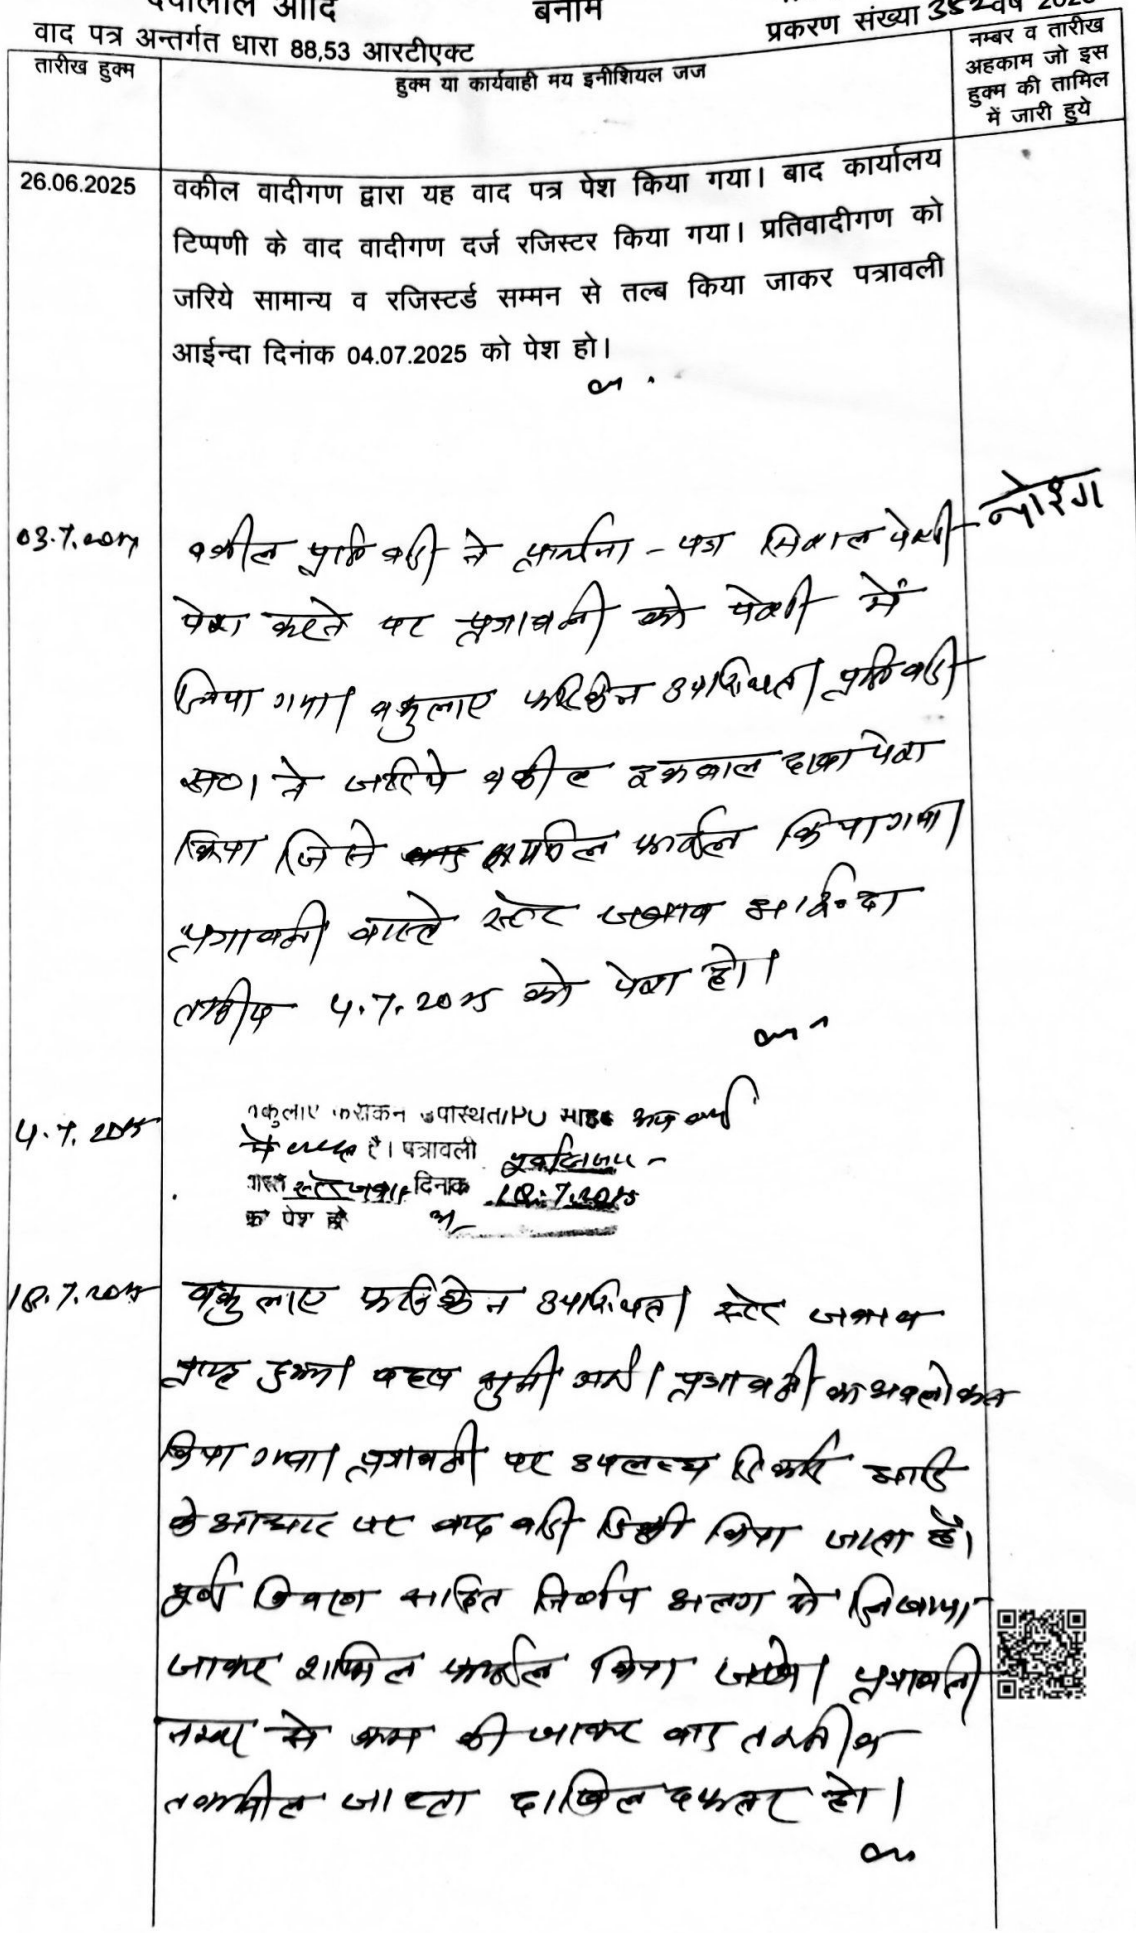 आदि
बनाम
प्रकरण संख्या 352 वर्ष
वाद पत्र अन्तर्गत धारा 88,53 आरटीएक्ट
तारीख हुक्म
हुक्म या कार्यवाही मय इनीशियल जज
नम्बर व तारीख
अहकाम जो इस
हुक्म की तामिल
में जारी हुये
26.06.2025
वकील वादीगण द्वारा यह वाद पत्र पेश किया गया। बाद कार्यालय
टिप्पणी के वाद वादीगण दर्ज रजिस्टर किया गया। प्रतिवादीगण को
जरिये सामान्य व रजिस्टर्ड सम्मन से तल्ब किया जाकर पत्रावली
आईन्दा दिनांक 04.07.2025 को पेश हो।
03.7.2025
वकील प्रतिवादी ने प्रार्थना - पत्र पेशी
पेश करने पर पत्रावली को पेशी में
लिया गया। वकुलाए फरिकेन उपस्थित। प्रतिवादी
सं0 1 ने जरिये वकील इकबाल दावा पेश
किया जिसे शामिल फाईल किया गया।
पत्रावली वास्ते स्टेट जवाब आईन्दा
तारीख 4.7.2025 को पेश हो।
4.7.2025
वकुलाए फरीकन उपस्थित। PO साहब
है। पत्रावली
वास्ते स्टेट जवाब दिनांक 18.7.2025
को पेश हो
18.7.2025
वकुलाए फरिकेन उपस्थित। स्टेट जवाब
प्राप्त हुआ। बहस सुनी गई। पत्रावली का अवलोकन
किया गया। पत्रावली पर उपलब्ध रिकॉर्ड आदि
के आधार पर वाद वादी डिक्री किया जाता है।
पूर्ण विवरण सहित निर्णय अलग से लिखाया
जाकर शामिल फाईल किया जावे। पत्रावली
नम्बर से कम की जाकर बाद
तकमील जाब्ता दाखिल दफ्तर हो।